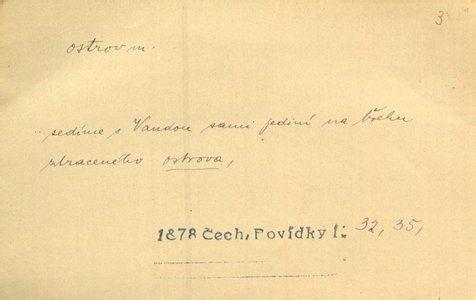 3
ostrov m.
„ sedíme s Vandou sami jediní na břehu
ztraceného ostrova,
1878 Čech, Povídky I: 32, 35,